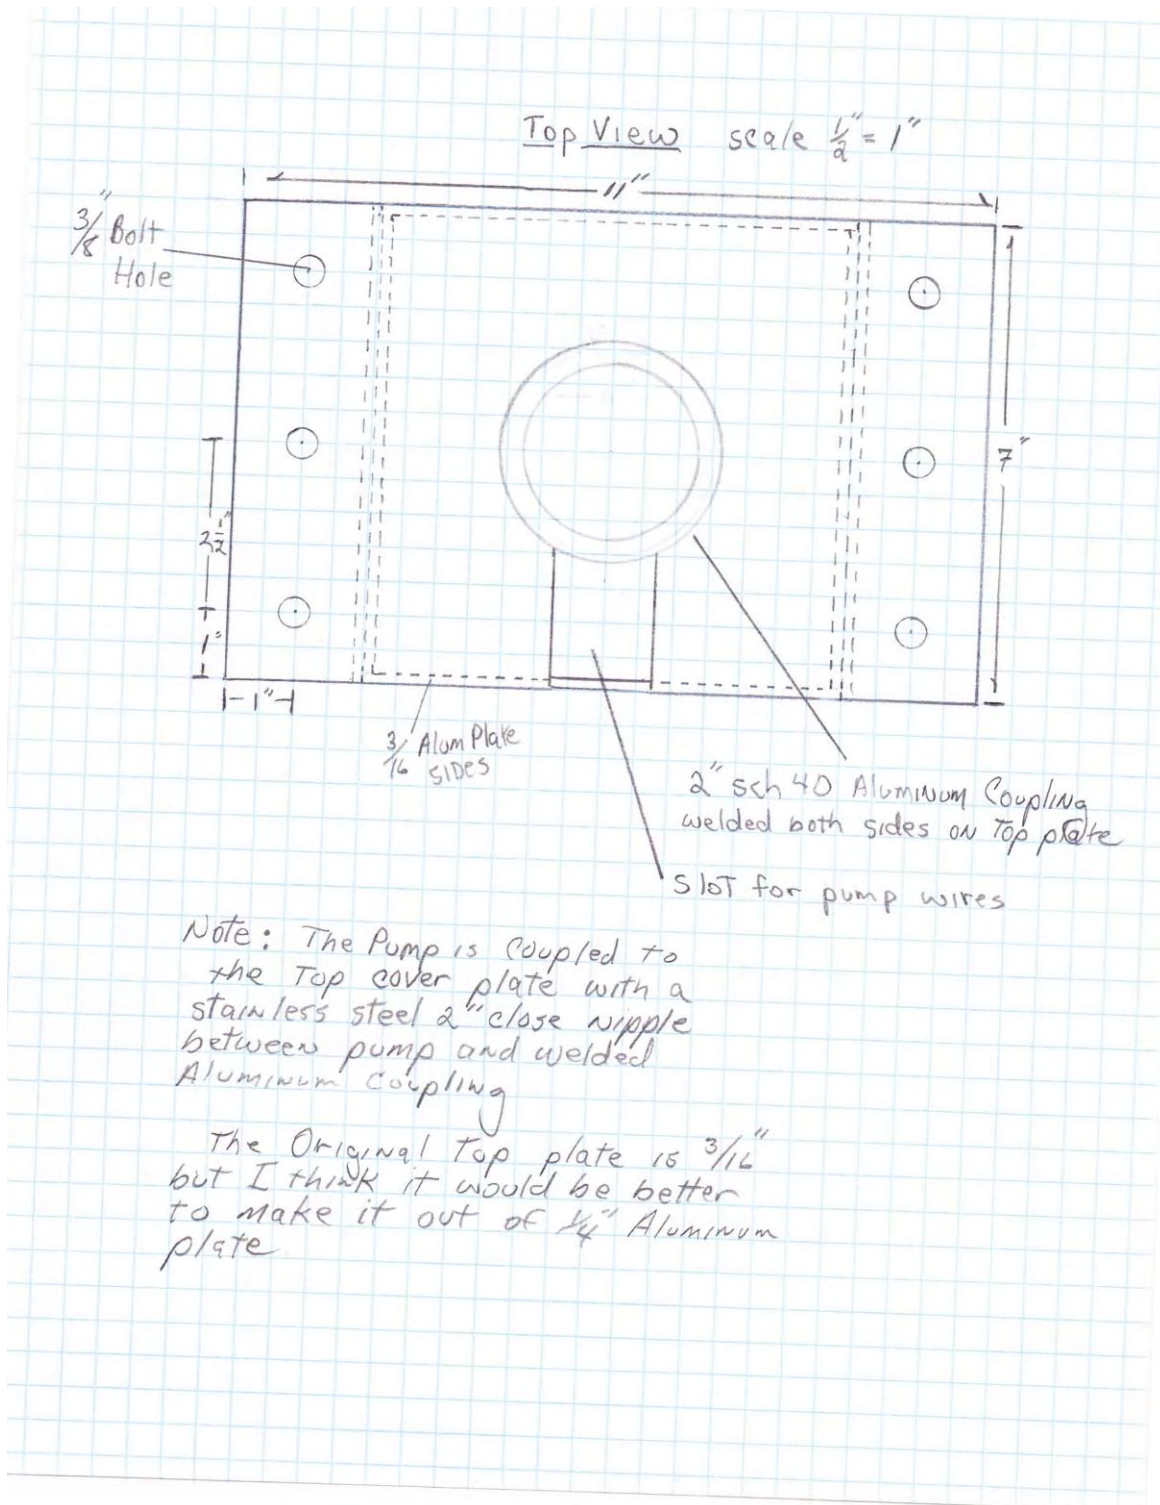 Top View scale 1/2" = 1"
11"
3/8" Bolt
Hole
7"
2 1/2"
1"
1"
3/16 Alum Plate
SIDES
2" sch 40 Aluminum Coupling
welded both sides on Top plate
SLOT for pump wires
Note: The Pump is Coupled to
the Top cover plate with a
stainless steel 2" close nipple
between pump and welded
Aluminum Coupling
The Original Top plate is 3/16"
but I think it would be better
to make it out of 1/4" Aluminum
plate